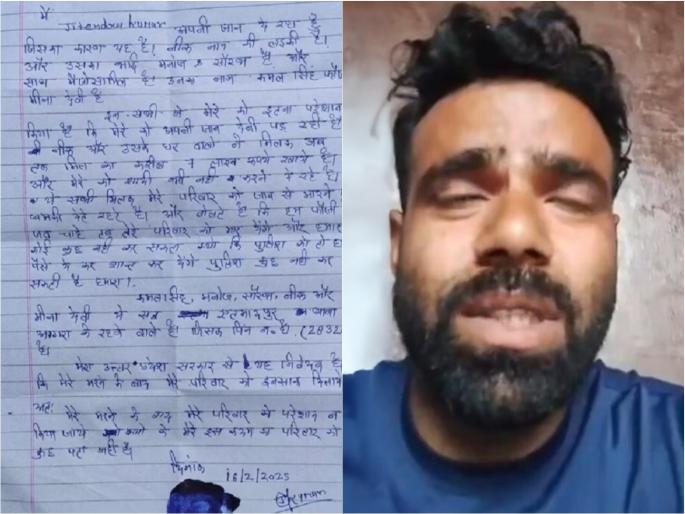 मैं Jitendra Kumar अपनी जान दे रहा है
जिसका कारण यह है। नीरू नाम की लड़की है।
और उसका भाई मनोज व सौरभ है और
साथ में शामिल है उनके नाम कमल सिंह और
मीना देवी है
इन सभी ने मेरे को इतना परेशान
किया है कि मेरे को अपनी जान देनी पड़ रही है
नीरू और उसके घर वालो ने मिलकर अब
तक मिल का करीब 7 लाख रुपये खाये है।
और मेरे को शादी भी नही करने दे रहे है।
ये सभी मिलकर मेरे परिवार को जान से मारने
धमकी देते रहते है। और बोलते है कि हम
जब चाहे तब तेरे परिवार को मार देंगे और हमारा
कोई कुछ नही कर सकता क्यो कि पुलिस को तो हम
पैसे दे कर शान्त कर देंगे पुलिस कुछ नही कर
सकती है हमारा।
कमलसिंह, मनोज, सौरभ, नीरू और
मीना देवी ये सब एत्मादपुर
आगरा के रहने वाले है। जिसका पिन न० है (2832
है।
मेरा उत्तर प्रदेश सरकार से यह निवेदन है
कि मेरे मरने के बाद मेरे परिवार को इनसाफ
अतः मेरे मरने के बाद मेरे परिवार को परेशान न
किया जाये क्यो कि मेरे इस कदम का परिवार को
कुछ पता नही है।
दिनांक
16/2/2025